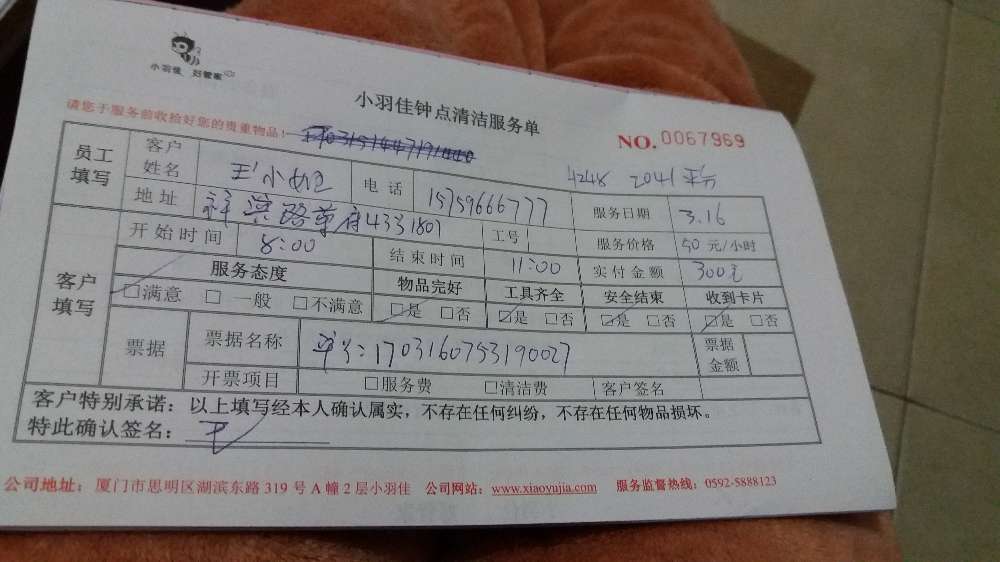 小羽佳 好管家
小羽佳钟点清洁服务单
请您于服务前收拾好您的贵重物品!
NO.0067969
4248 2041
员工填写 客户姓名 王小姐 电话 15759666777 服务日期 3.16
地址 4331801 工号 服务价格 50元/小时
客户填写 开始时间 8:00 结束时间 11:00 实付金额 300元
服务态度 物品完好 工具齐全 安全结束 收到卡片
□满意 □一般 □不满意 □是 □否 □是 □否 □是 □否 □是 □否
票据 票据名称 单号:1703160753190027 票据金额
开票项目 □服务费 □清洁费 客户签名
客户特别承诺:以上填写经本人确认属实,不存在任何纠纷,不存在任何物品损坏。
特此确认签名:王
公司地址:厦门市思明区湖滨东路319号A幢2层小羽佳 公司网站:www.xiaoyujia.com 服务监督热线:0592-5888123